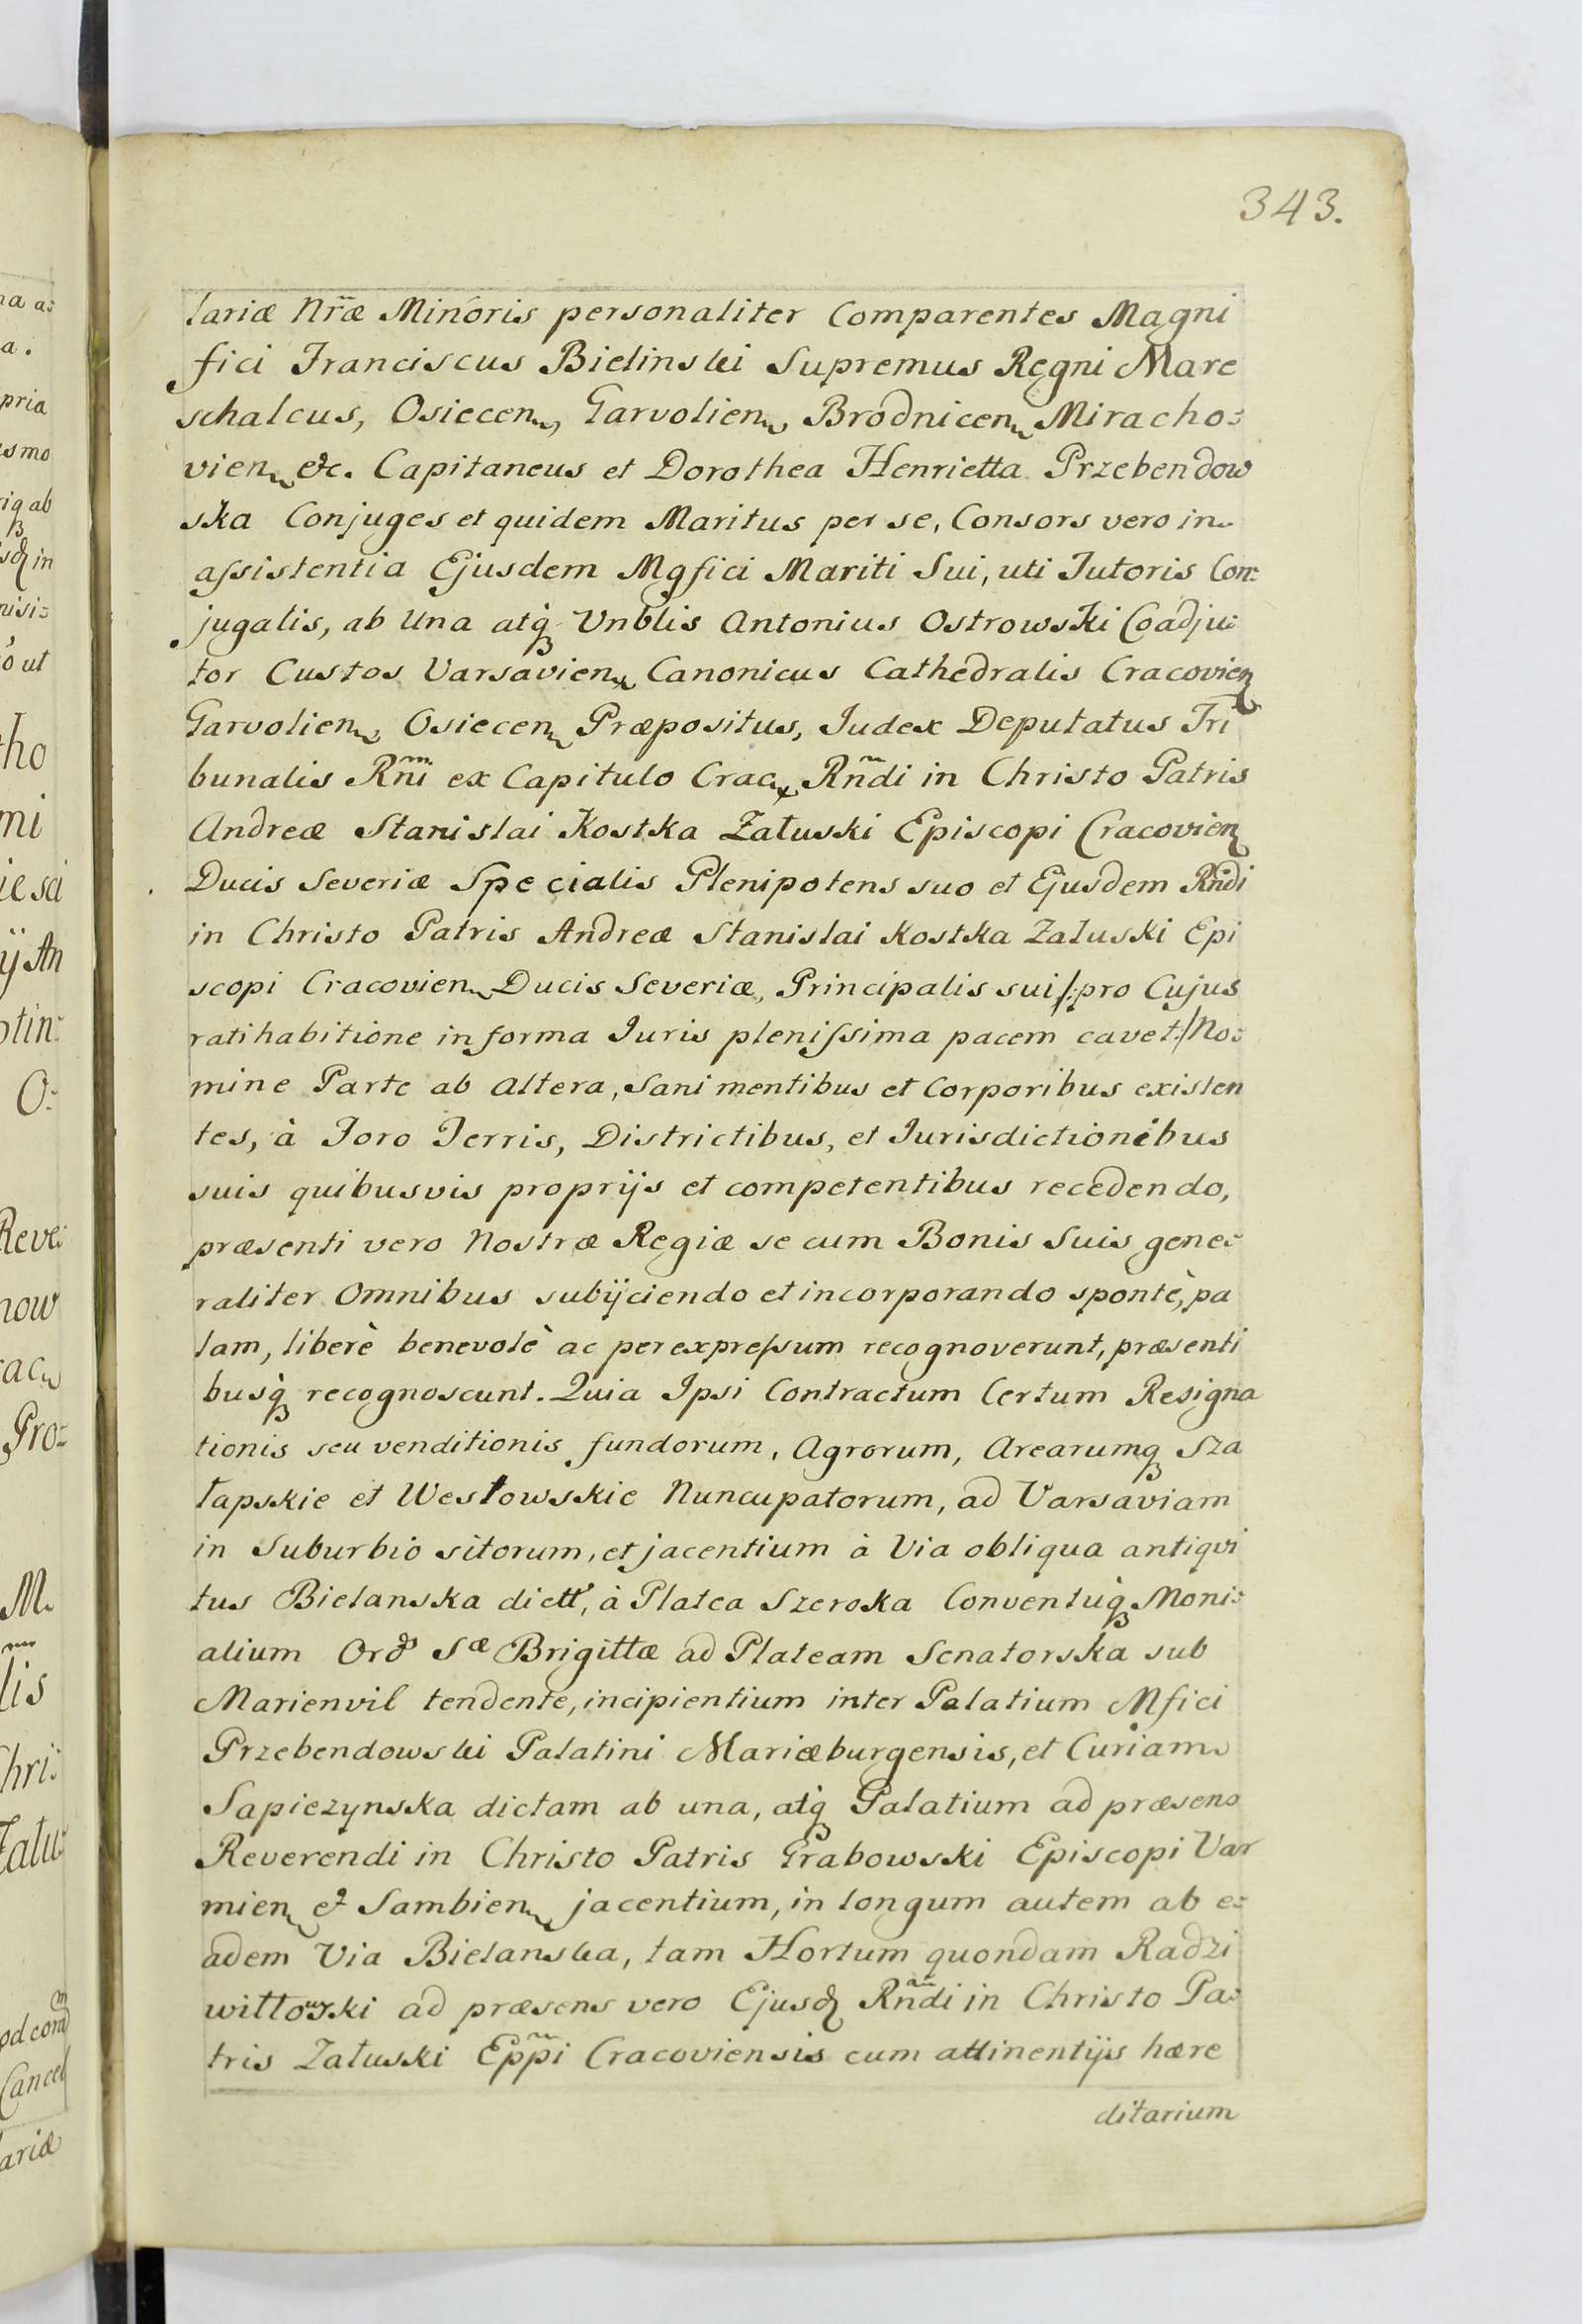 343.
lariæ Nr̃æ Minoris personaliter Comparentes Magni
fici Franciscus Bielinski Supremus Regni Mare
schalcus, Osiecen, Garvolien, Brodnicen Miracho=
vien etc. Capitaneus et Dorothea Henrietta Przebendow
ska Conjuges et quidem Maritus per se, Consors vero in
aſsistentia Ejusdem Mgfici Mariti Sui, uti Tutoris Con=
jugalis, ab Una atq̨ Vnblis Antonius Ostrowski Coadju=
tor Custos Varsavien Canonicus Cathedralis Cracovien
Garvolien, Osiecen Præpositus, Judex Deputatus Tri
bunalis Rñi ex Capitulo Crac, Rñdi in Christo Patris
Andreæ Stanislai Kostka Załuski Episcopi Cracovien
Ducis Severiæ Specialis Plenipotens suo et Ejusdem Rñdi
in Christo Patris Andreæ Stanislai Kostka Załuski Epi
scopi Cracovien Ducis Severiæ, Principalis sui /:pro Cujus
ratihabitione in forma Juris pleniſsima pacem cavet:/ No=
mine Parte ab altera, Sani mentibus et Corporibus existen
tes, à Foro Terris, Districtibus, et Jurisdictionibus
suis quibusvis proprijs et competentibus recedendo,
præsenti vero Nostræ Regiæ se cum Bonis Suis gene=
raliter Omnibus subijciendo et incorporando spontè, pa
lam, liberè benevolè ac per expreſsum recognoverunt, præsenti
busq̨ recognoscunt. Quia Ipsi Contractum Certum Resigna
tionis seu venditionis fundorum, Agrorum, Arearumq̨ Sza
łapskie et Wesłowskie Nuncupatorum, ad Varsaviam
in Suburbio sitorum, et jacentium à Via obliqua antiqvi
tus Bielanska dictt, à Platea Szeroka Conventuq̨ Moni=
alium Ord Sæ Brigittæ ad Plateam Senatorska sub
Marienvil tendente, incipientium inter Palatium Mfici
Przebendowski Palatini Mariæburgensis, et Curiam
Sapiezynska dictam ab una, atq̨ Palatium ad præsens
Reverendi in Christo Patris Grabowski Episcopi Var
mien et Sambien jacentium, in longum autem ab e=
adem Via Bielanska, tam Hortum quondam Radzi
wiłłowski ad præsens vero Ejusd Rñdi in Christo Pa=
tris Załuski Epp̃i Cracoviensis cum attinentijs hære
ditarium